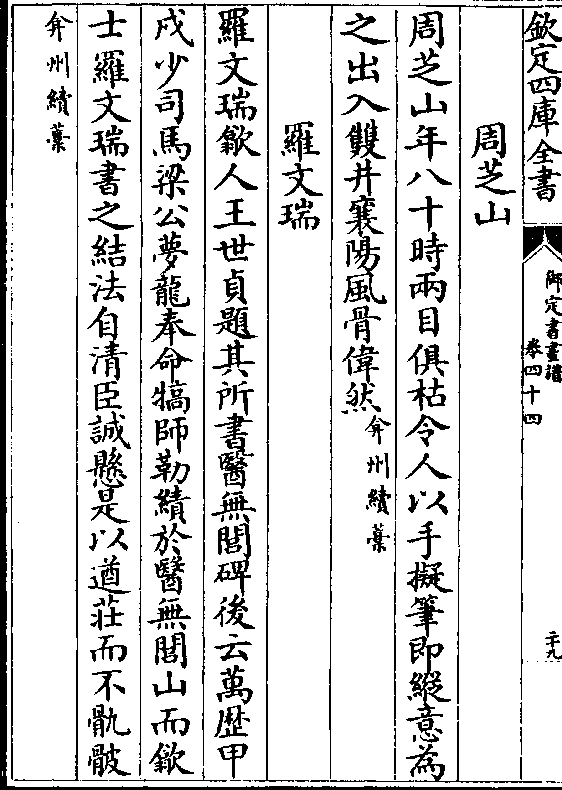 欽定四庫全書
御定書畫譜
卷四十四
二十九
周芝山
周芝山年八十時兩目俱枯令人以手擬筆即縱意為
之出入雙井襄陽風骨偉然弇州續藁
羅文瑞
羅文瑞歙人王世貞題其所書醫無閭碑後云萬歴甲
戍少司馬梁公夢龍奉命犒師勒績於醫無閭山而歙
士羅文瑞書之結法自清臣誠懸是以遒莊而不骫骳
弇州續藁